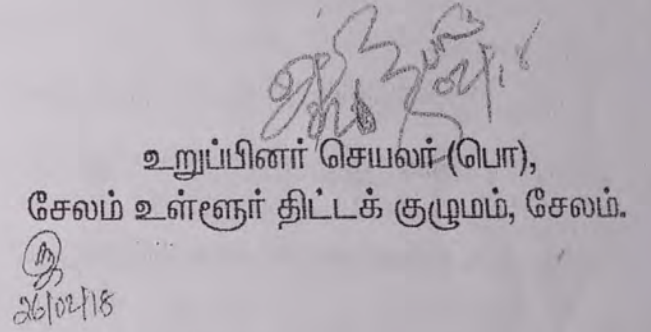 உறுப்பினர் செயலர் (பொ),
சேலம் உள்ளூர் திட்டக் குழுமம், சேலம்.
26/02/18